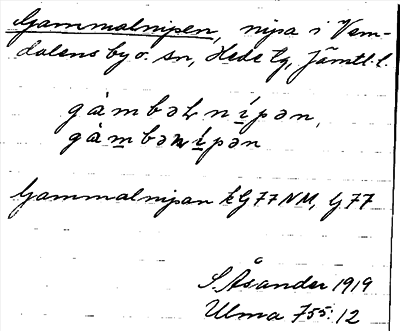 Gammalnipen, nipa i Vem-
dalens by o. sn, Hede tg, Jämtl. l.
gàmbəɫ nípən,
gàmbəṉípən
Gammalnipan k G77 NM, G 77
S. Åsander 1919
Ulma 755:12